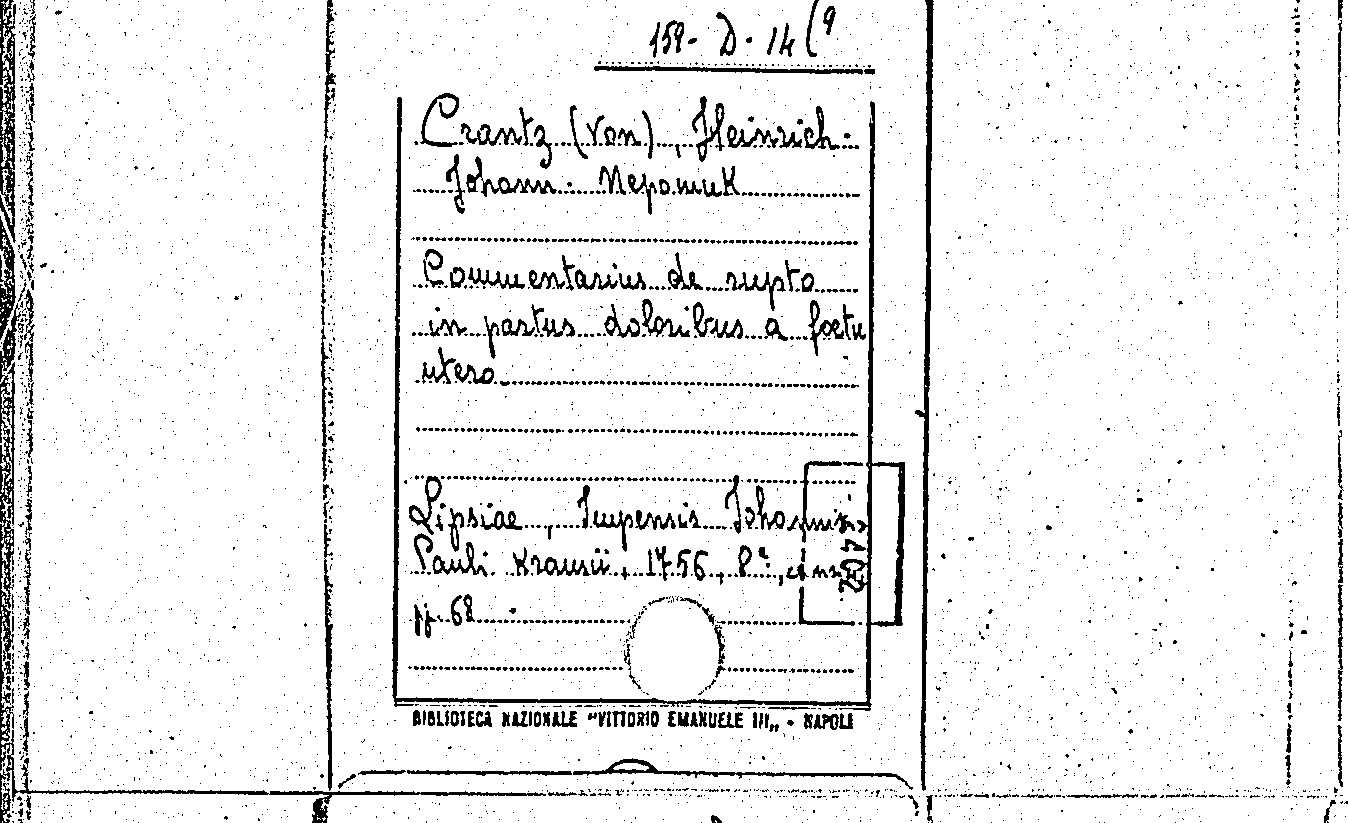 159- D- 14 (9
Crantz (von), Heinrich-
Johann- Nepomuk
Commentarius de rupto
in partus doloribus a foetu
utero
Lipsiae, Impensis Johannis
Pauli Krausii, 1756, 8°,
pp. 68
BIBLIOTECA NAZIONALE "VITTORIO EMANUELE III„ - NAPOLI